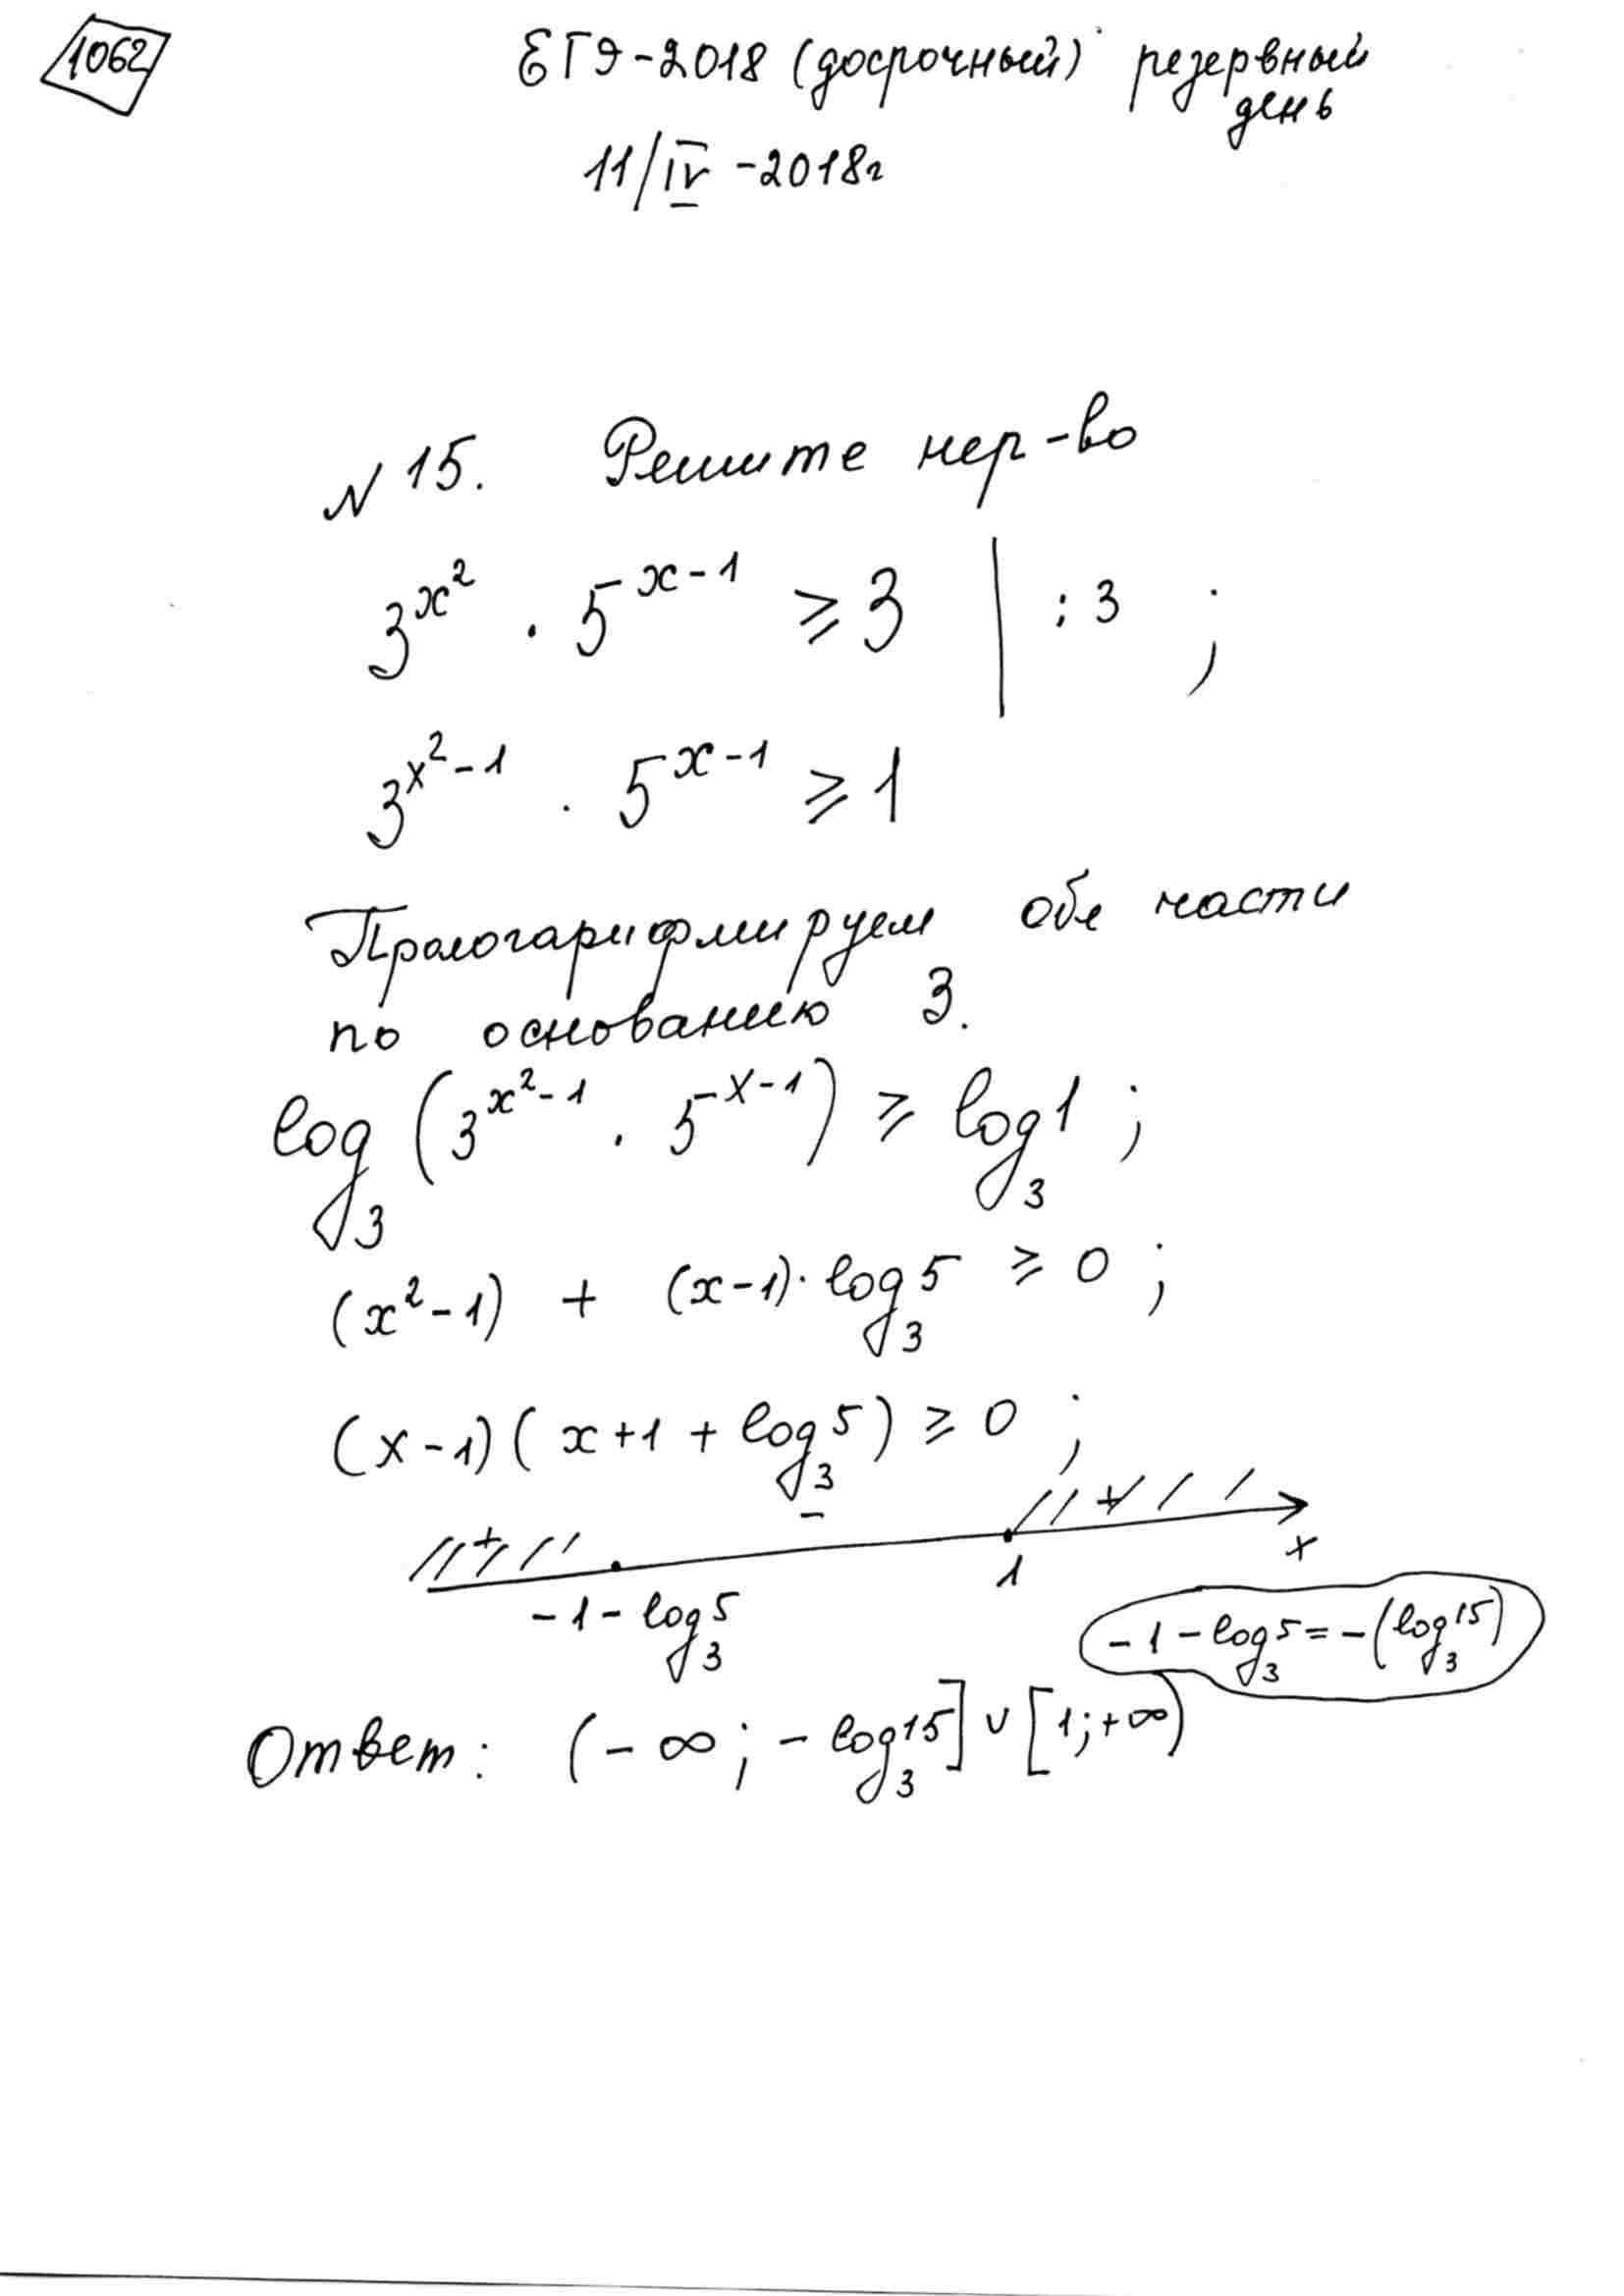 1062
ЕГЭ-2018 (досрочный) резервный
день
11/IV-2018г
№15. Решите нер-во
3^{x^2} · 5^{x-1} ≥ 3 | :3 ;
3^{x^2-1} · 5^{x-1} ≥ 1
Прологарифмируем обе части
по основанию 3.
log_3 (3^{x^2-1} · 5^{x-1}) ≥ log_3 1 ;
(x^2-1) + (x-1)·log_3 5 ≥ 0 ;
(x-1)(x+1+log_3 5) ≥ 0 ;
+ - +
-1-log_3 5 1 x
-1-log_3 5=-(log_3 15)
Ответ: (-∞; -log_3 15] ∪ [1;+∞)